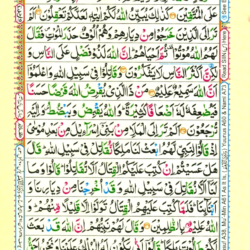 عَلَى الْمُتَّقِيْنَ ۝ كَذٰلِكَ يُبَيِّنُ اللّٰهُ لَكُمْ اٰيٰتِهٖ لَعَلَّكُمْ تَعْقِلُوْنَ ۝
اَلَمْ تَرَ اِلَى الَّذِيْنَ خَرَجُوْا مِنْ دِيَارِهِمْ وَهُمْ اُلُوْفٌ حَذَرَ الْمَوْتِ فَقَالَ
لَهُمُ اللّٰهُ مُوْتُوْا ثُمَّ اَحْيَاهُمْ اِنَّ اللّٰهَ لَذُوْ فَضْلٍ عَلَى النَّاسِ وَ
لٰكِنَّ اَكْثَرَ النَّاسِ لَا يَشْكُرُوْنَ ۝ وَقَاتِلُوْا فِيْ سَبِيْلِ اللّٰهِ وَاعْلَمُوْا
اَنَّ اللّٰهَ سَمِيْعٌ عَلِيْمٌ ۝ مَنْ ذَا الَّذِيْ يُقْرِضُ اللّٰهَ قَرْضًا حَسَنًا
فَيُضٰعِفَهٗ لَهٗ اَضْعَافًا كَثِيْرَةً وَاللّٰهُ يَقْبِضُ وَيَبْصُۜطُ وَاِلَيْهِ
تُرْجَعُوْنَ ۝ اَلَمْ تَرَ اِلَى الْمَلَاِ مِنْ بَنِيْ اِسْرَآءِيْلَ مِنْ بَعْدِ مُوْسٰى
اِذْ قَالُوْا لِنَبِيٍّ لَّهُمُ ابْعَثْ لَنَا مَلِكًا نُّقَاتِلْ فِيْ سَبِيْلِ اللّٰهِ قَالَ
هَلْ عَسَيْتُمْ اِنْ كُتِبَ عَلَيْكُمُ الْقِتَالُ اَلَّا تُقَاتِلُوْا قَالُوْا وَمَا
لَنَآ اَلَّا نُقَاتِلَ فِيْ سَبِيْلِ اللّٰهِ وَقَدْ اُخْرِجْنَا مِنْ دِيَارِنَا وَ
اَبْنَآئِنَا فَلَمَّا كُتِبَ عَلَيْهِمُ الْقِتَالُ تَوَلَّوْا اِلَّا قَلِيْلًا مِّنْهُمْ وَ
اللّٰهُ عَلِيْمٌۢ بِالظّٰلِمِيْنَ ۝ وَقَالَ لَهُمْ نَبِيُّهُمْ اِنَّ اللّٰهَ قَدْ بَعَثَ